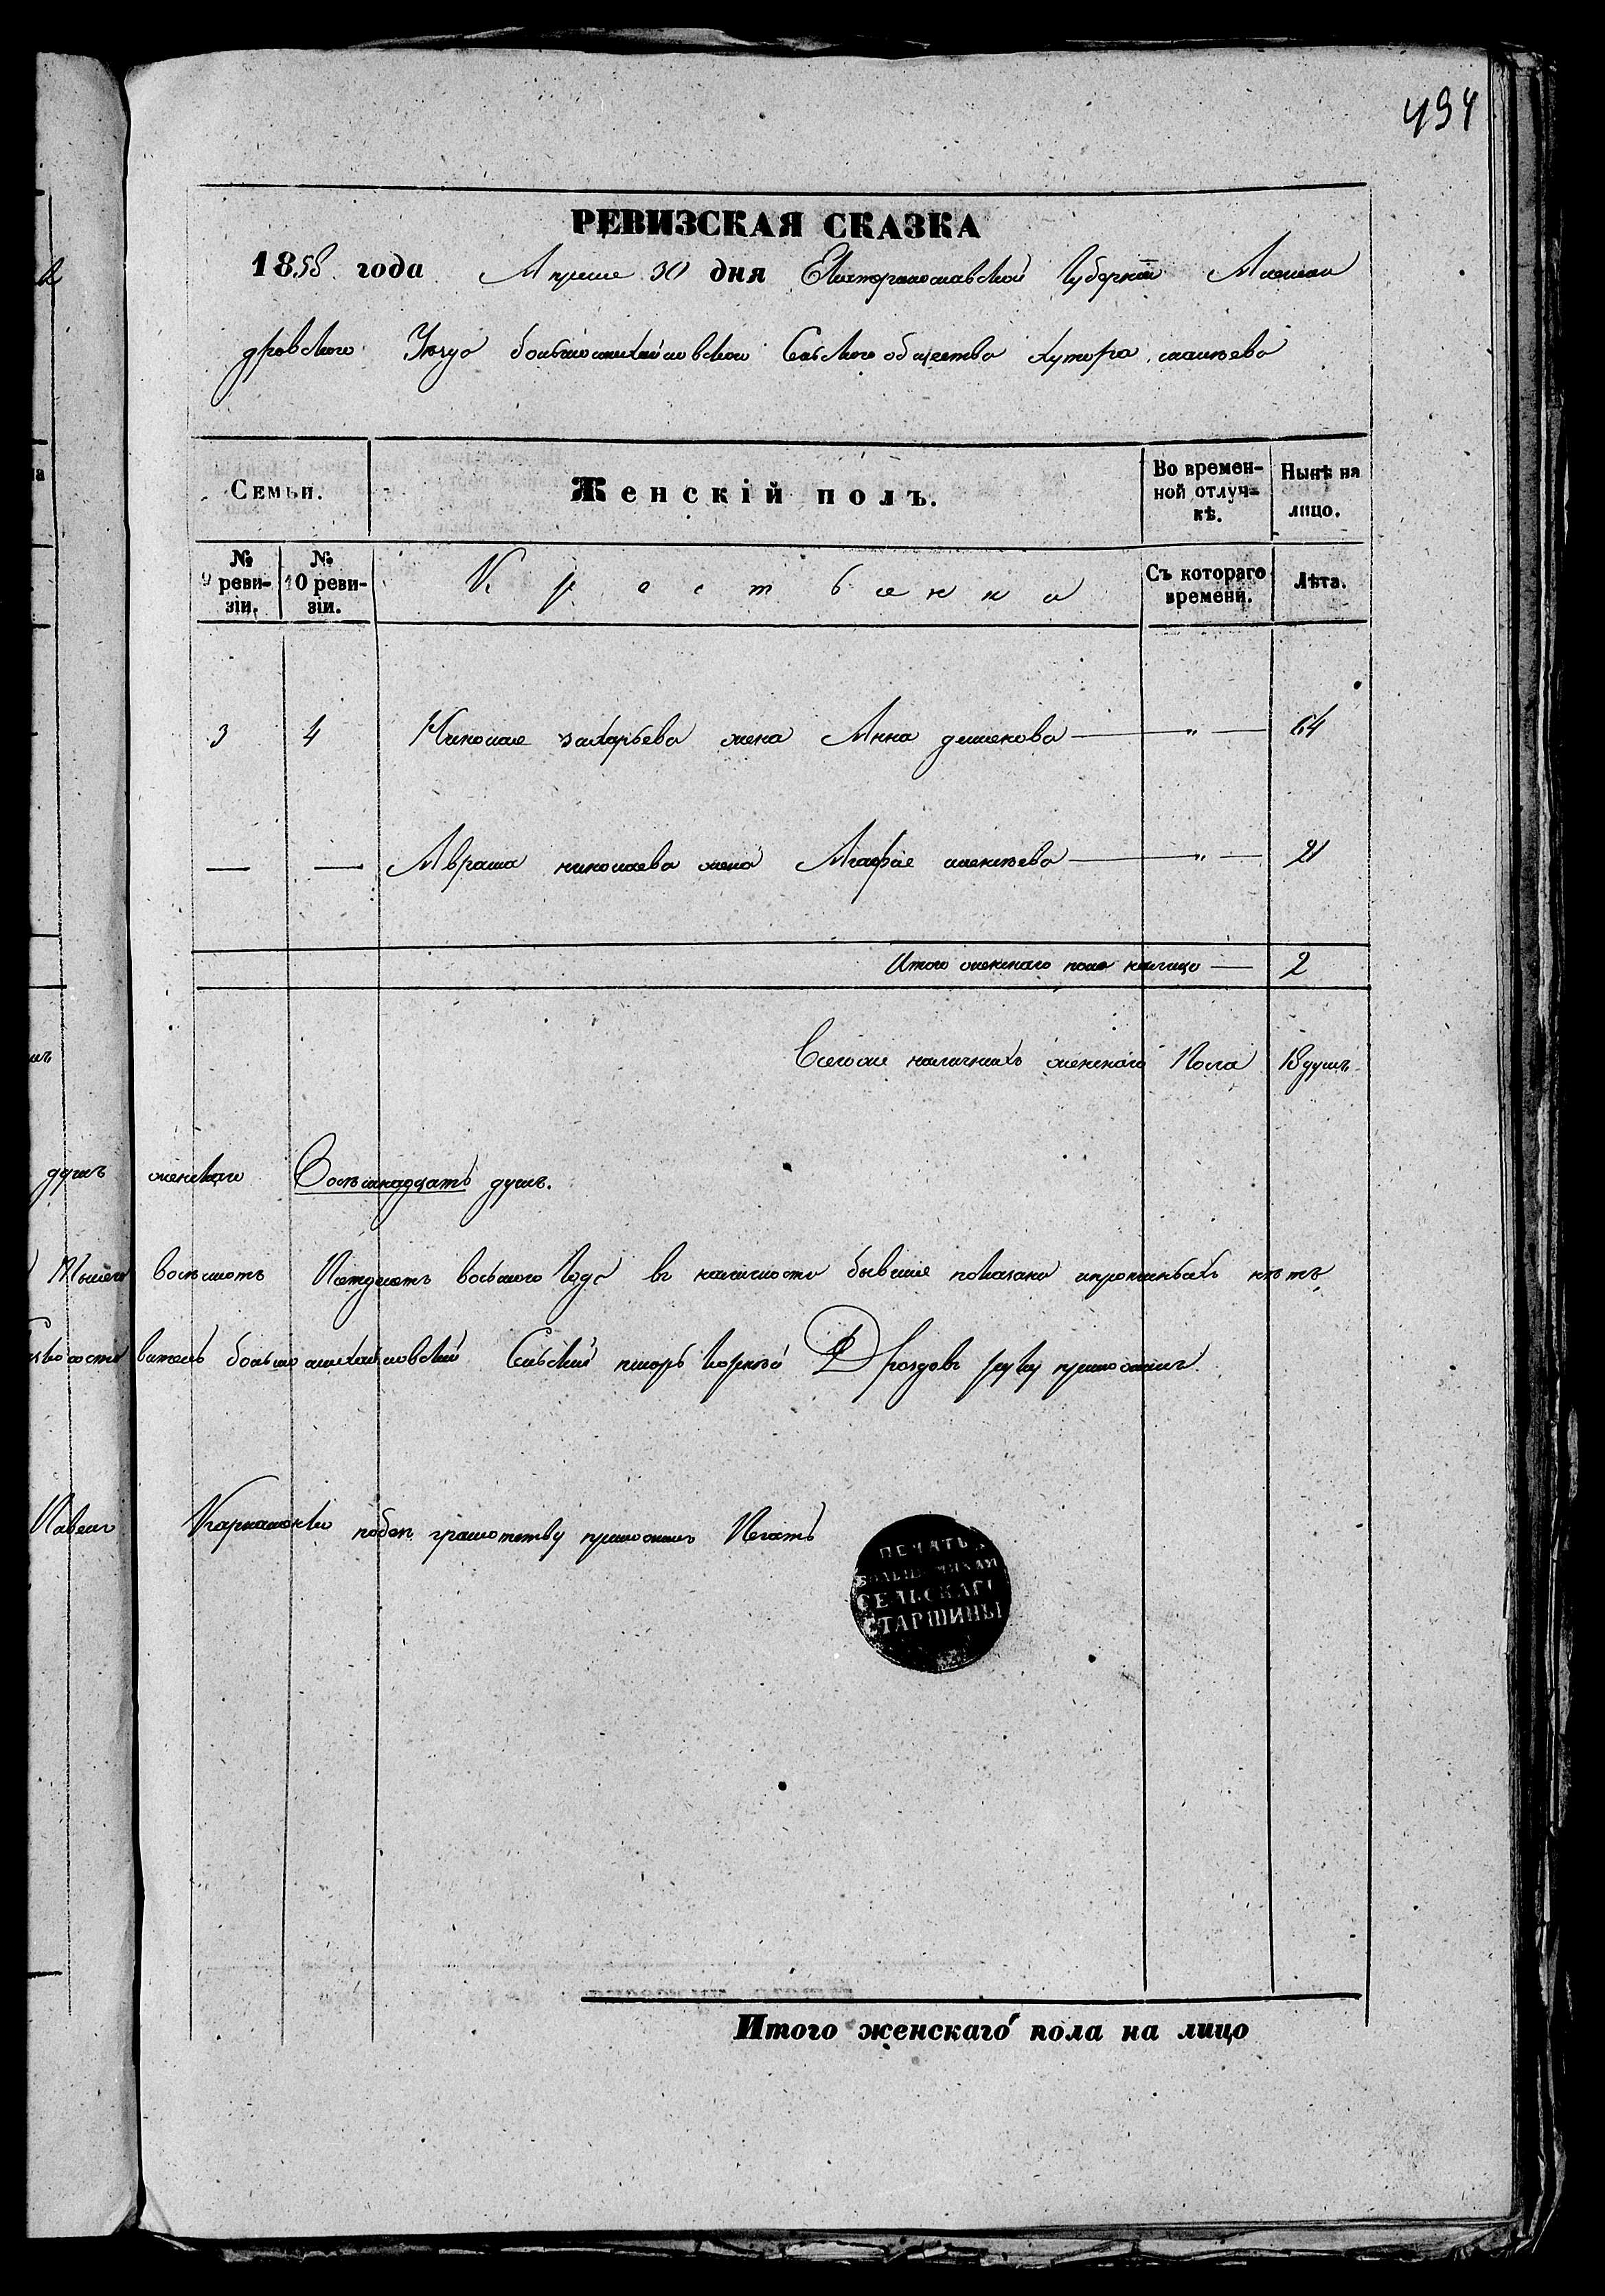 494
РЕВИЗСКАЯ СКАЗКА
1858 года Апреля 30 дня Екатеринославской Губернии Алексан
дровского Уезда большемихайловскои Сельского общества хутора
Семьи.
Женскій полъ.
Во времен-
ной отлуч-
кѣ.
Нынѣ на
лицо.
№
9 реви-
зіи.
№
10 реви-
зіи.
Крестьянка
Съ котораго
времени.
Лѣта.
3 4 Николая захарьева жена Анна демьянова — " — 64
— — Аврама николаева жена Агафья алексѣева — " — 21
Итого женскаго пола налицо — 2
Всегоже наличныхъ женскаго Пола 18 душъ
душъ женскаго Восѣмнадцать душъ.
Тысеча восѣмсотъ Пятдесятъ восьмого Года въ наличности бывшие показани нѣтъ
большемихайловский Сельский писарь Корней Дроздовъ руку приложилъ
Павелъ грамотству приложилъ Печать
ПЕЧАТЬ
БОЛЬШЕ МИХАЙ
СЕЛЬСКАГО
СТАРШИНЫ
Итого женскаго пола на лицо